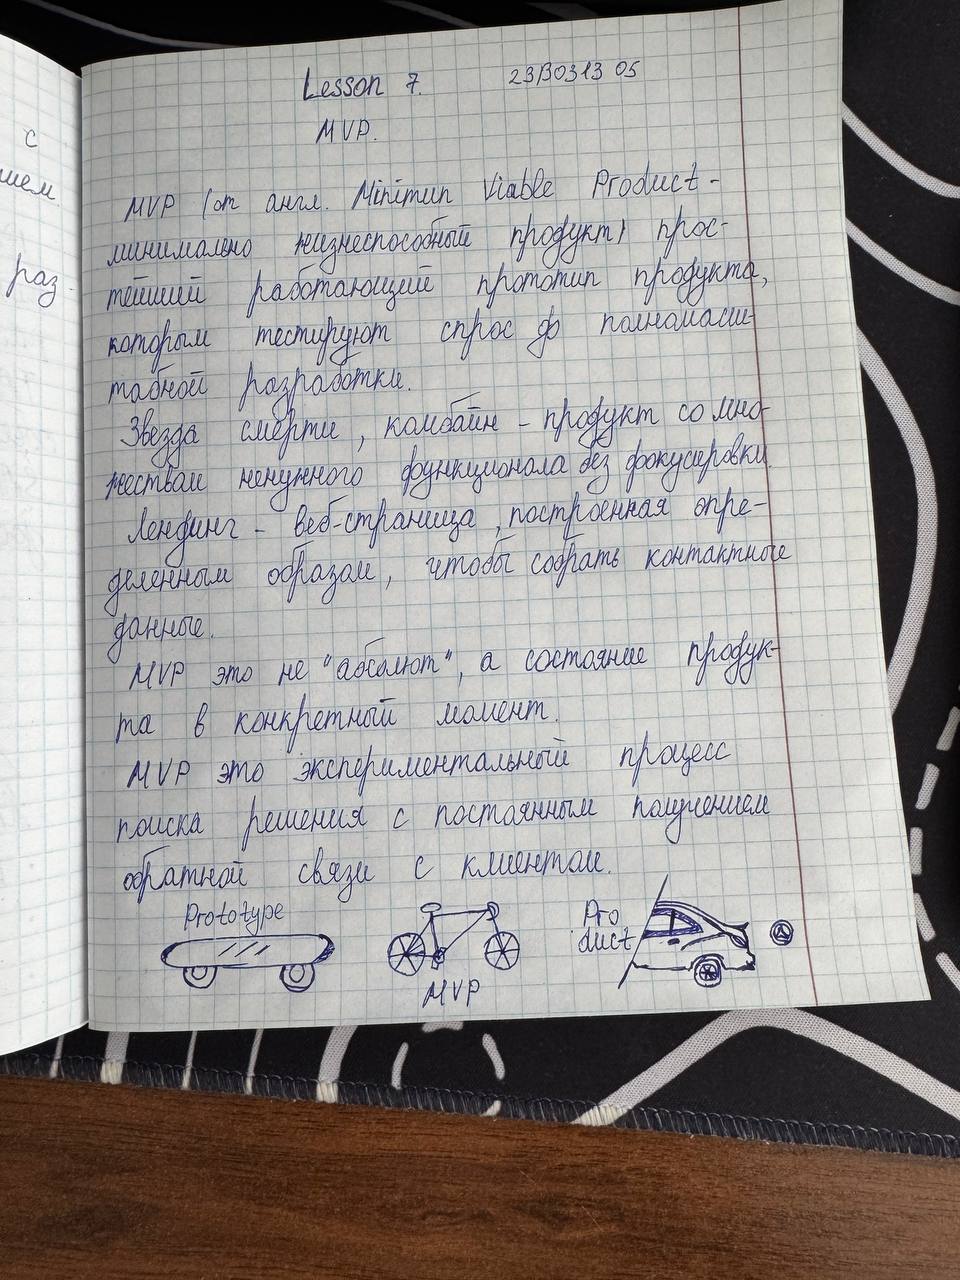 с
шем.
раз-
Lesson 7. 23B031305
MVP.
MVP (от англ. Minimun Viable Product -
минимально жизнеспособный продукт) прос-
тейший работающий прототип продукта,
которым тестируют спрос до полномасш-
табной разработки.
Звезда смерти, комбайн - продукт со мно-
жеством ненужного функционала без фокусировки.
Лендинг - веб-страница, построенная опре-
деленным образом, чтобы собрать контактные
данные.
MVP это не "абсолют", а состояние продук-
та в конкретный момент.
MVP это экспериментальный процесс
поиска решения с постоянным получением
обратной связи с клиентом.
Prototype
MVP
Pro
duct